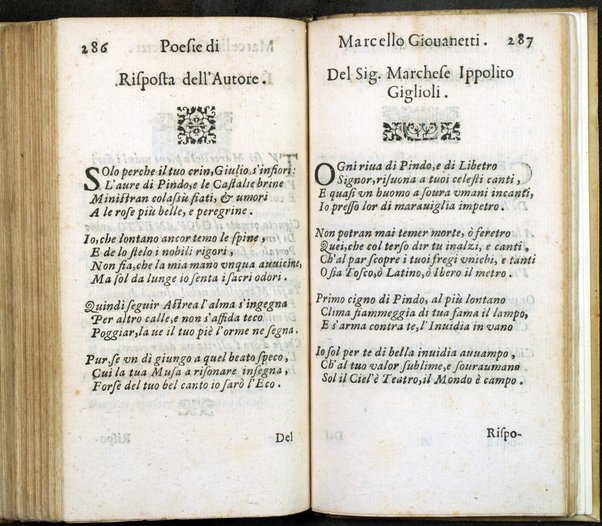 286 Poesie di
Risposta dell'Autore.
SOlo perche il tuo crin, Giulio s'infiori:
L'aure di Pindo, e le Castalie brine
Ministran colasù i fiati, & umori
A le rose più belle, e peregrine.
Io, che lontano ancor temo le spine,
E de lo stelo i nobili rigori,
Non fia, che la mia mano vnqua auuicine,
Ma sol da lunge io senta i sacri odori.
Quindi seguir Astrea l'alma s'ingegna
Per altro calle, e non s'affida teco
Poggiar, la ue il tuo piè l'orme ne segna.
Pur, se vn dì giungo a quel beato speco,
Cui la tua Musa a risonare insegna,
Forse del tuo bel canto io sarò l'Eco.
Rispo-
Del
Marcello Giouanetti. 287
Del Sig. Marchese Ippolito
Giglioli.
OGni riua di Pindo, e di Libetro
Signor, risuona a tuoi celesti canti,
E quasi vn huomo a soura vmani incanti,
Io presso lor di marauiglia impetro.
Non potran mai temer morte, ò feretro
Quei, che col terso dir tu inalzi, e canti,
Ch'al par scopre i tuoi fregi vnichi, e tanti
O sia Tosco, ò Latino, ò Ibero il metro.
Primo cigno di Pindo, al più lontano
Clima fiammeggia di tua fama il lampo,
E s'arma contra te, l'Inuidia in vano
Io sol per te di bella inuidia auuampo,
Ch'al tuo valor sublime, e souraumano
Sol il Ciel'è Teatro, il Mondo è campo.
Rispo-